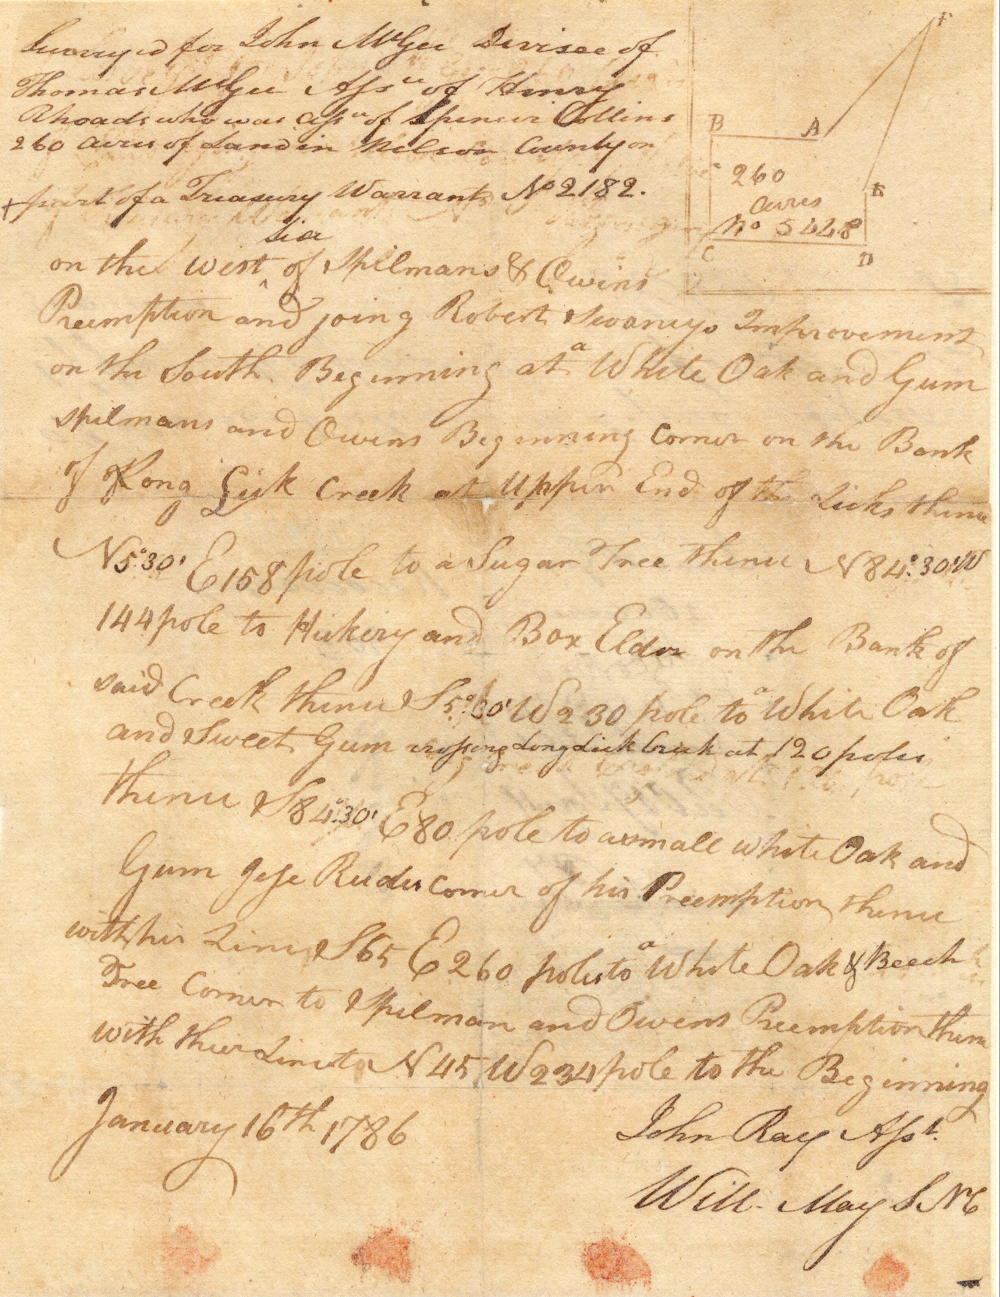 Surveyed for John McGee Devisee of
Thomas McGee Asse of Henry
Rhoads who was asse of Spencer Collins
260 acres of Land in Nelson County on
+ part of a Treasury Warrant No 2182.
Side
on the west ^ of Spilmans & Owins
Preemption and joing Robert Swaneys Improvement
on the South. Beginning at a White Oak and Gum
Spilmans and Owens Beginning Corner on the Bank
of Long Lick Creek at Upper End of the Licks thence
N5°30' E158 pole to a Sugar Tree thence N84°30'W
144 pole to Hickery and Box Elder on the Bank of
said Creek thence S5°30' W230 pole to a White Oak
and Sweet Gum crossing Long Lick Creek at 120 poles
thence S84°30' E80 pole to a small white Oak and
Gum Jesse Rudes Corner of his Preemption thence
with his Line S65 E260 poles to a White Oak & Beech
Tree Corner to Spilman and Owens Preemption thence
with their Line to N45 W234 pole to the Beginning
January 16th 1786
John Ray Asst.
Will. May S N C
F
B
A
260
acres
No 5448
E
C
D